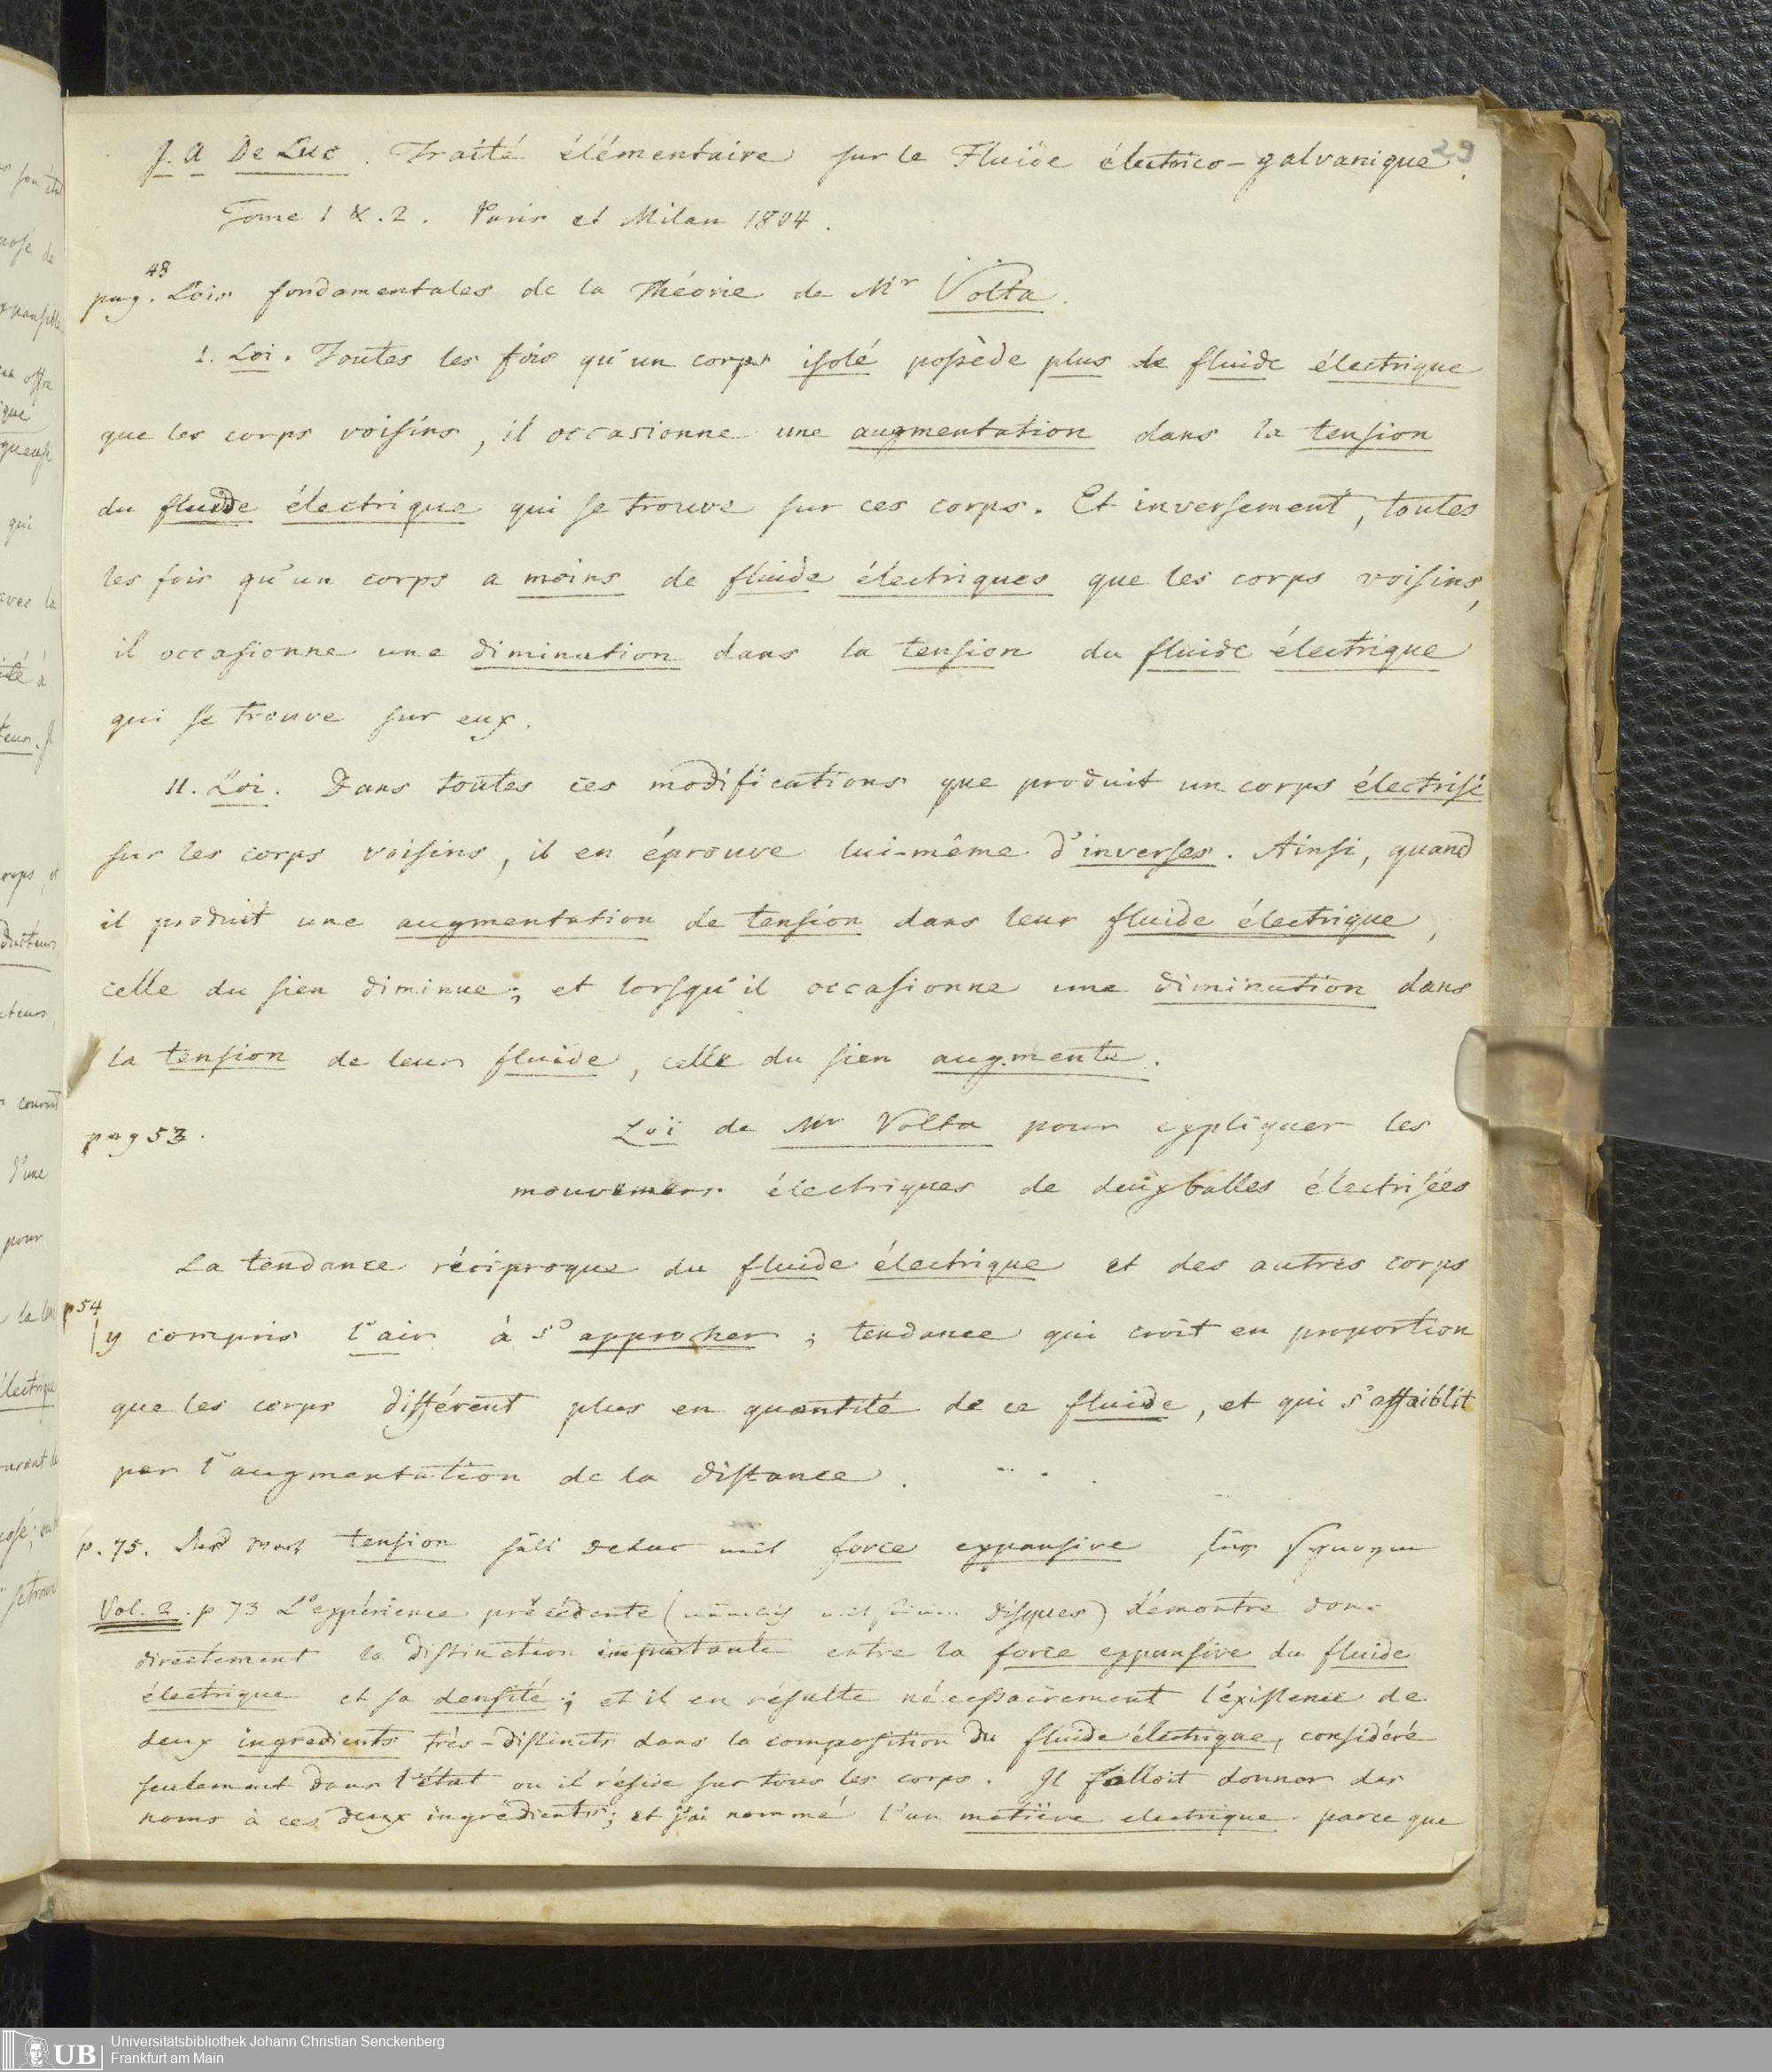 29
J. A De Luc. Traité élémentaire sur le Fluide électrico-galvanique.
Tome 1 &. 2. Paris et Milan 1804.
pag. 48 Lois fondamentales de la Théorie de Mr Volta.
1. Loi. Toutes les fois qu'un corps isolé possède plus de fluide électrique
que les corps voisins, il occasionne une augmentation dans la tension
du fluide électrique qui se trouve sur ces corps. Et inversement, toutes
les fois qu'un corps a moins de fluide électriques que les corps voisins,
il occasionne une diminution dans la tension du fluide électrique
qui se trouve sur eux.
II. Loi. Dans toutes ces modifications que produit un corps électrisé
sur les corps voisins, il en éprouve lui-même d'inverses. Ainsi, quand
il produit une augmentation de tension dans leur fluide électrique,
celle du sien diminue; et lorsqu'il occasionne une diminution dans
la tension de leur fluide, celle du sien augmente.
pag 53. Loi de Mr Volta pour expliquer les
mouvemens électriques de deux balles électrisées
La tendance réciproque du fluide électrique et des autres corps
p 54 y compris l'air à s'approcher; tendance qui croît en proportion
que les corps différent plus en quantité de ce fluide, et qui s'affaiblit
par l'augmentation de la distance.
p. 75. tension Deluc force expansive
Vol. 2. p 73 L'expérience précédente ( disques) démontre donc
directement la distinction importante entre la force expansive du fluide
électrique et sa densité; et il en résulte nécessairement l'existence de
deux ingredients très-distincts dans la composition du fluide électrique, considéré
seulement dans l'état ou il réside sur tous les corps. Il falloit donner des
noms à ces deux ingrédients; et j'ai nommé l'un matière electrique parce que
UB Universitätsbibliothek Johann Christian Senckenberg
Frankfurt am Main